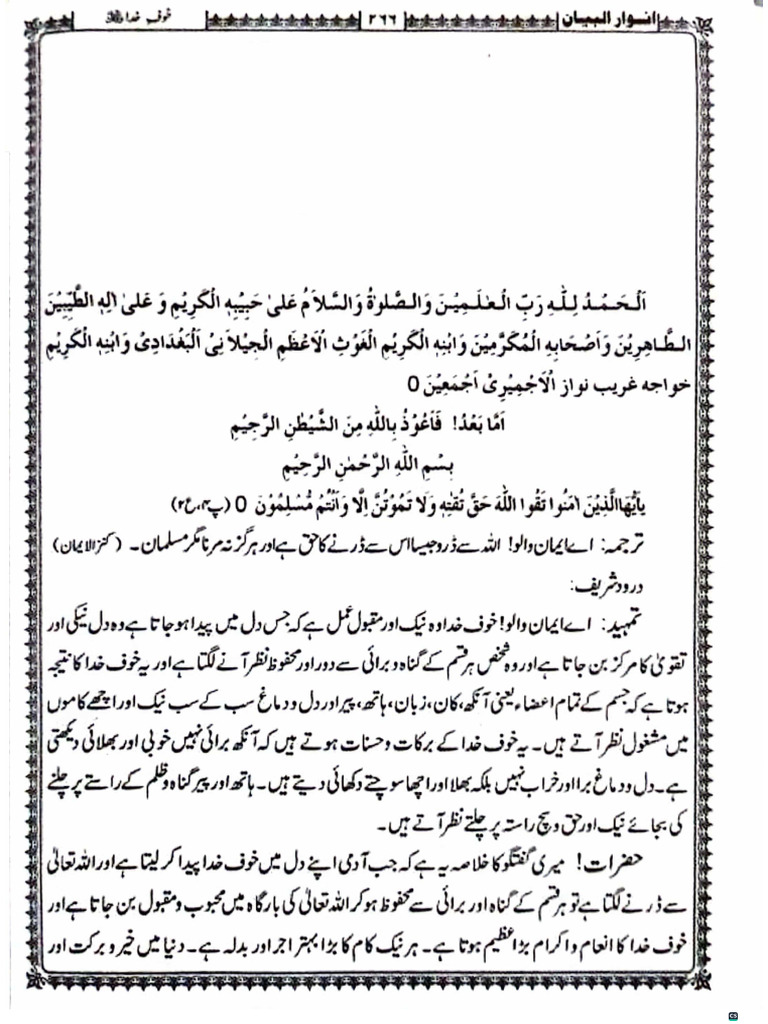 انوار البیان ۲۶۶ خوف خدا
اَلْحَمْدُ لِلّٰهِ رَبِّ الْعٰلَمِيْنَ وَالصَّلوٰةُ وَالسَّلاَمُ عَلىٰ حَبِيْبِهِ الْكَرِيْمِ وَ عَلىٰ اٰلِهِ الطَّيِّبِيْنَ
الطَّاهِرِيْنَ وَاَصْحَابِهِ الْمُكَرَّمِيْنَ وَابْنِهِ الْكَرِيْمِ الْغَوْثِ الْاَعْظَمِ الْجِيْلاَنِىْ الْبَغْدَادِىْ وَابْنِهِ الْكَرِيْمِ
خواجه غریب نواز اَلْاَجْمِيْرِىْ اَجْمَعِيْنَ 0
اَمَّا بَعْدُ! فَاَعُوْذُ بِاللّٰهِ مِنَ الشَّيْطٰنِ الرَّجِيْمِ
بِسْمِ اللّٰهِ الرَّحْمٰنِ الرَّحِيْمِ
يٰاَيُّهَاالَّذِيْنَ اٰمَنُوا تَّقُوا اللّٰهَ حَقَّ تُقٰتِهٖ وَلَا تَمُوْتُنَّ اِلَّا وَاَنْتُمْ مُّسْلِمُوْنَ 0 (پ۴،ع۲)
ترجمہ: اے ایمان والو! اللہ سے ڈرو جیسا اس سے ڈرنے کا حق ہے اور ہرگز نہ مرنا مگر مسلمان۔ (کنز الایمان)
درود شریف:
تمہید: اے ایمان والو! خوف خدا وہ نیک اور مقبول عمل ہے کہ جس دل میں پیدا ہو جاتا ہے وہ دل نیکی اور
تقویٰ کا مرکز بن جاتا ہے اور وہ شخص ہر قسم کے گناہ و برائی سے دور اور محفوظ نظر آنے لگتا ہے اور یہ خوف خدا کا نتیجہ
ہوتا ہے کہ جسم کے تمام اعضاء یعنی آنکھ، کان، زبان، ہاتھ، پیر اور دل و دماغ سب کے سب نیک اور اچھے کاموں
میں مشغول نظر آتے ہیں۔ یہ خوف خدا کے برکات و حسنات ہوتے ہیں کہ آنکھ برائی نہیں خوبی اور بھلائی دیکھتی
ہے۔ دل و دماغ برا اور خراب نہیں بلکہ بھلا اور اچھا سوچتے دکھائی دیتے ہیں۔ ہاتھ اور پیر گناہ و ظلم کے راستے پر چلنے
کی بجائے نیک اور حق و سچ راستہ پر چلتے نظر آتے ہیں۔
حضرات! میری گفتگو کا خلاصہ یہ ہے کہ جب آدمی اپنے دل میں خوف خدا پیدا کر لیتا ہے اور اللہ تعالیٰ
سے ڈرنے لگتا ہے تو ہر قسم کے گناہ اور برائی سے محفوظ ہو کر اللہ تعالیٰ کی بارگاہ میں محبوب و مقبول بن جاتا ہے اور
خوف خدا کا انعام و اکرام بڑا عظیم ہوتا ہے۔ ہر نیک کام کا بڑا بہتر اجر اور بدلہ ہے۔ دنیا میں خیر و برکت اور
CS